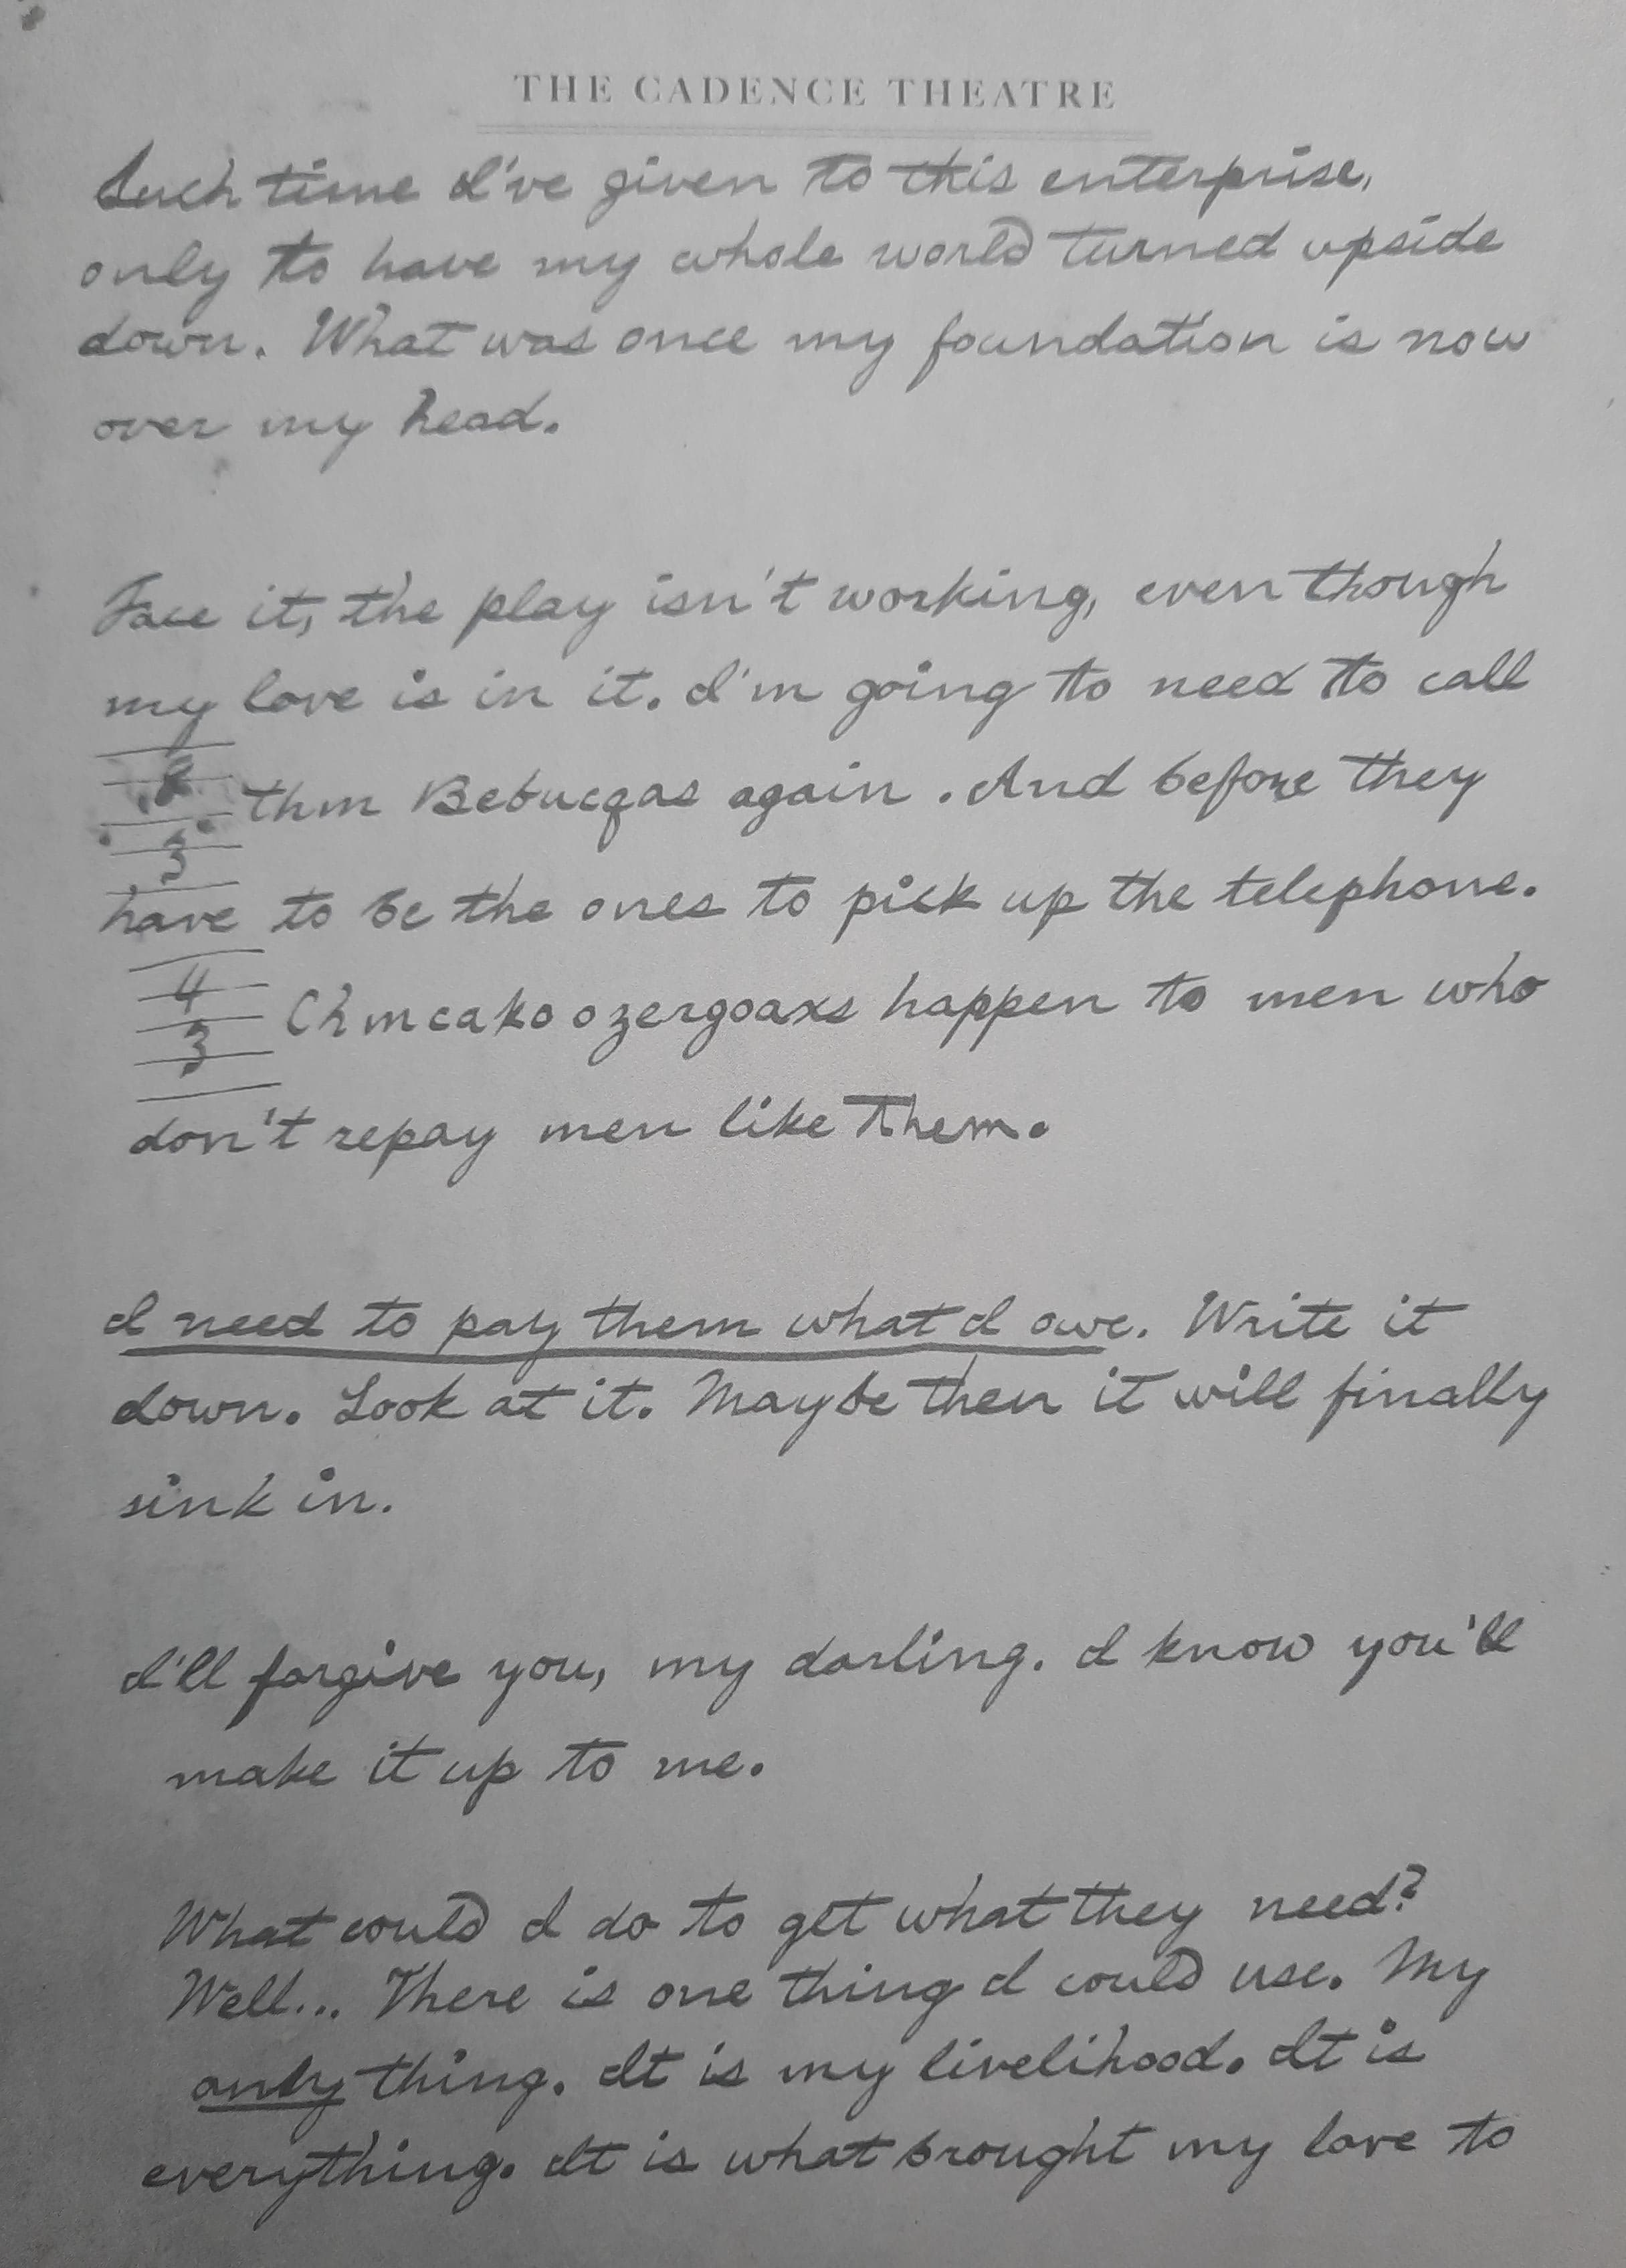 THE CADENCE THEATRE
Such time I've given to this enterprise,
only to have my whole world turned upside
down. What was once my foundation is now
over my head.
Face it, the play isn't working, even though
my love is in it. I'm going to need to call
8
3
thm Bebucqas again. And before they
have to be the ones to pick up the telephone.
4
3
Chmcakoozergoaxs happen to men who
don't repay men like them.
I need to pay them what I owe. Write it
down. Look at it. Maybe then it will finally
sink in.
I'll forgive you, my darling. I know you'll
make it up to me.
What could I do to get what they need?
Well... There is one thing I could use. My
only thing. It is my livelihood. It is
everything. It is what brought my love to